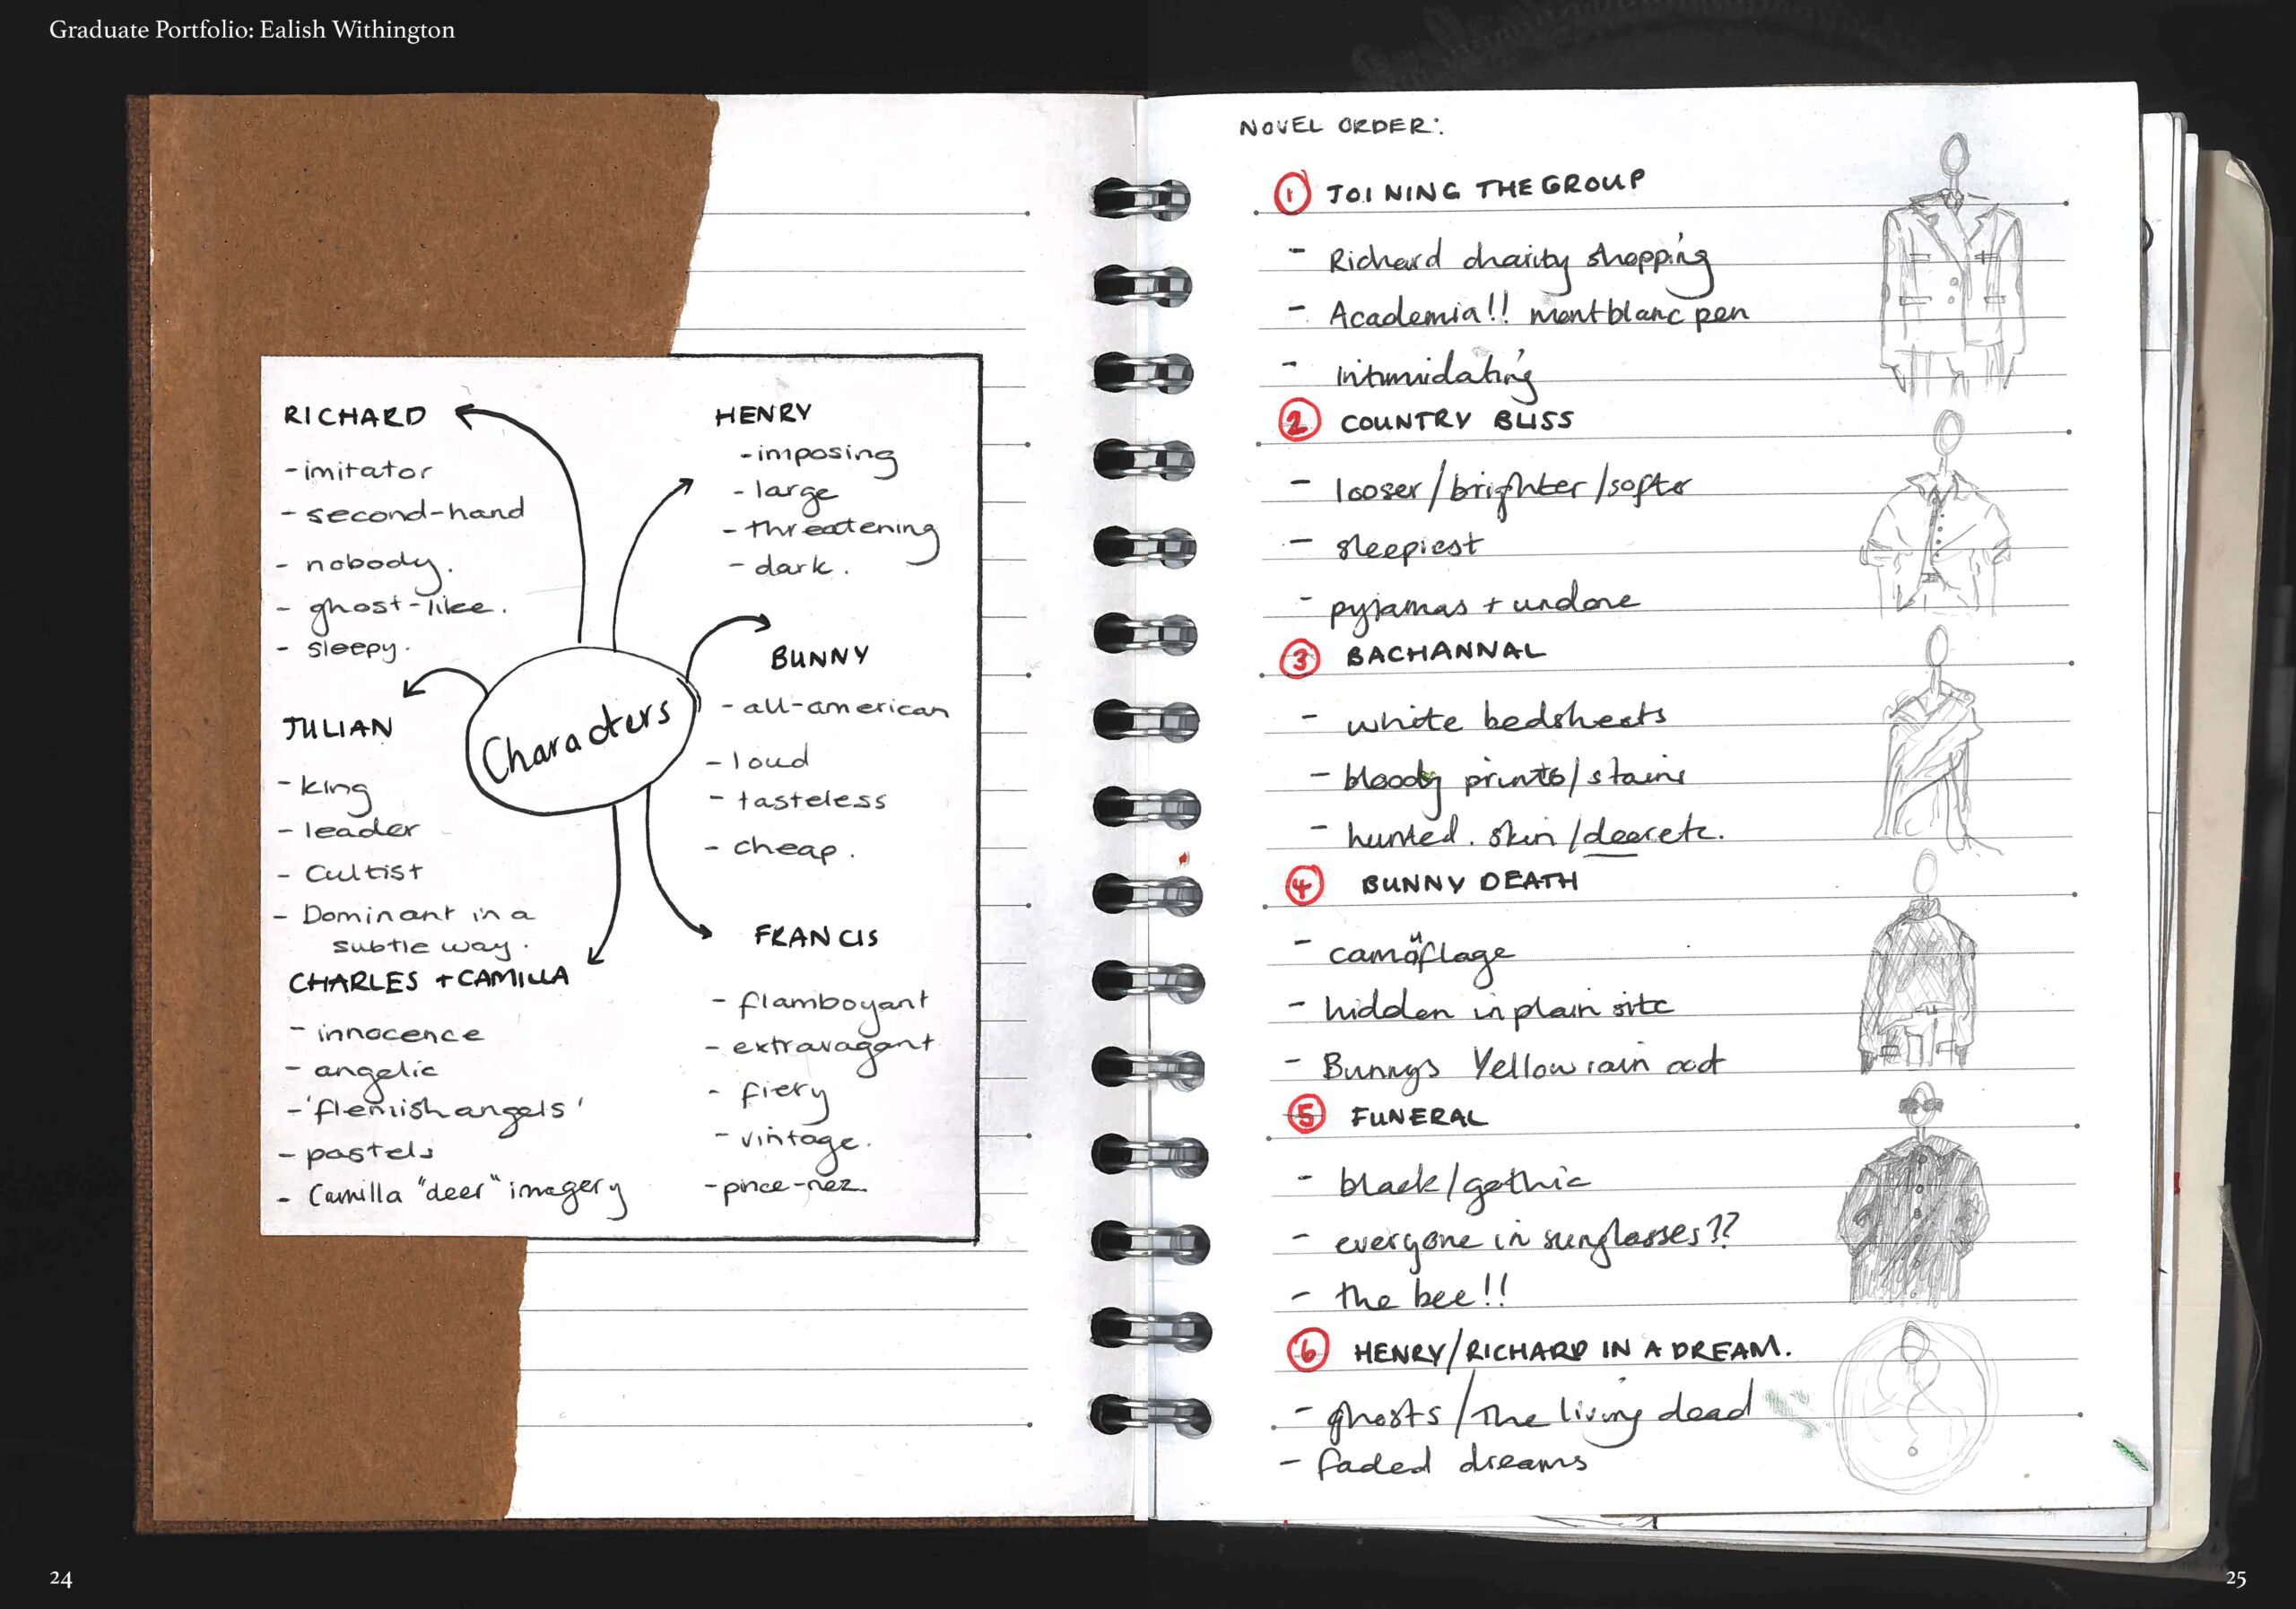 Graduate Portfolio: Ealish Withington
RICHARD
- imitator
- second-hand
- nobody.
- ghost-like.
- sleepy.
JULIAN
- king
- leader
- Cultist
- Dominant in a
subtle way.
CHARLES + CAMILLA
- innocence
- angelic
- 'flemish angels'
- pastels
- Camilla "deer" imagery
Characters
HENRY
- imposing
- large
- threatening
- dark.
BUNNY
- all-american
- loud
- tasteless
- cheap.
FRANCIS
- flamboyant
- extravagant
- fiery
- vintage.
- pince-nez.
24
NOVEL ORDER:
1 JOINING THE GROUP
- Richard charity shopping
- Academia!! montblanc pen
- intimidating
2 COUNTRY BLISS
- looser/brighter/softer
- sleepiest
- pyjamas + undone
3 BACHANNAL
- white bedsheets
- bloody prints/stains
- hunted. skin/deer etc.
4 BUNNY DEATH
- camouflage
- hidden in plain site
- Bunnys Yellow rain coat
5 FUNERAL
- black/gothic
- everyone in sunglasses??
- the bee!!
6 HENRY/RICHARD IN A DREAM.
- ghosts/The living dead
- faded dreams
25